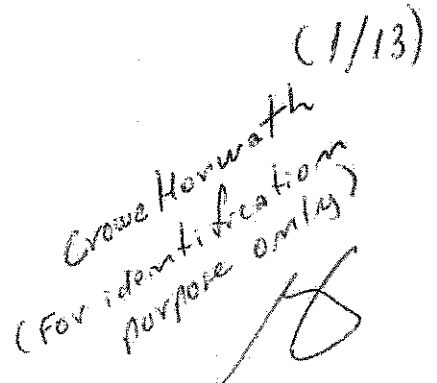 (1/13)
Crowe Horwath
(For identification
purpose only)